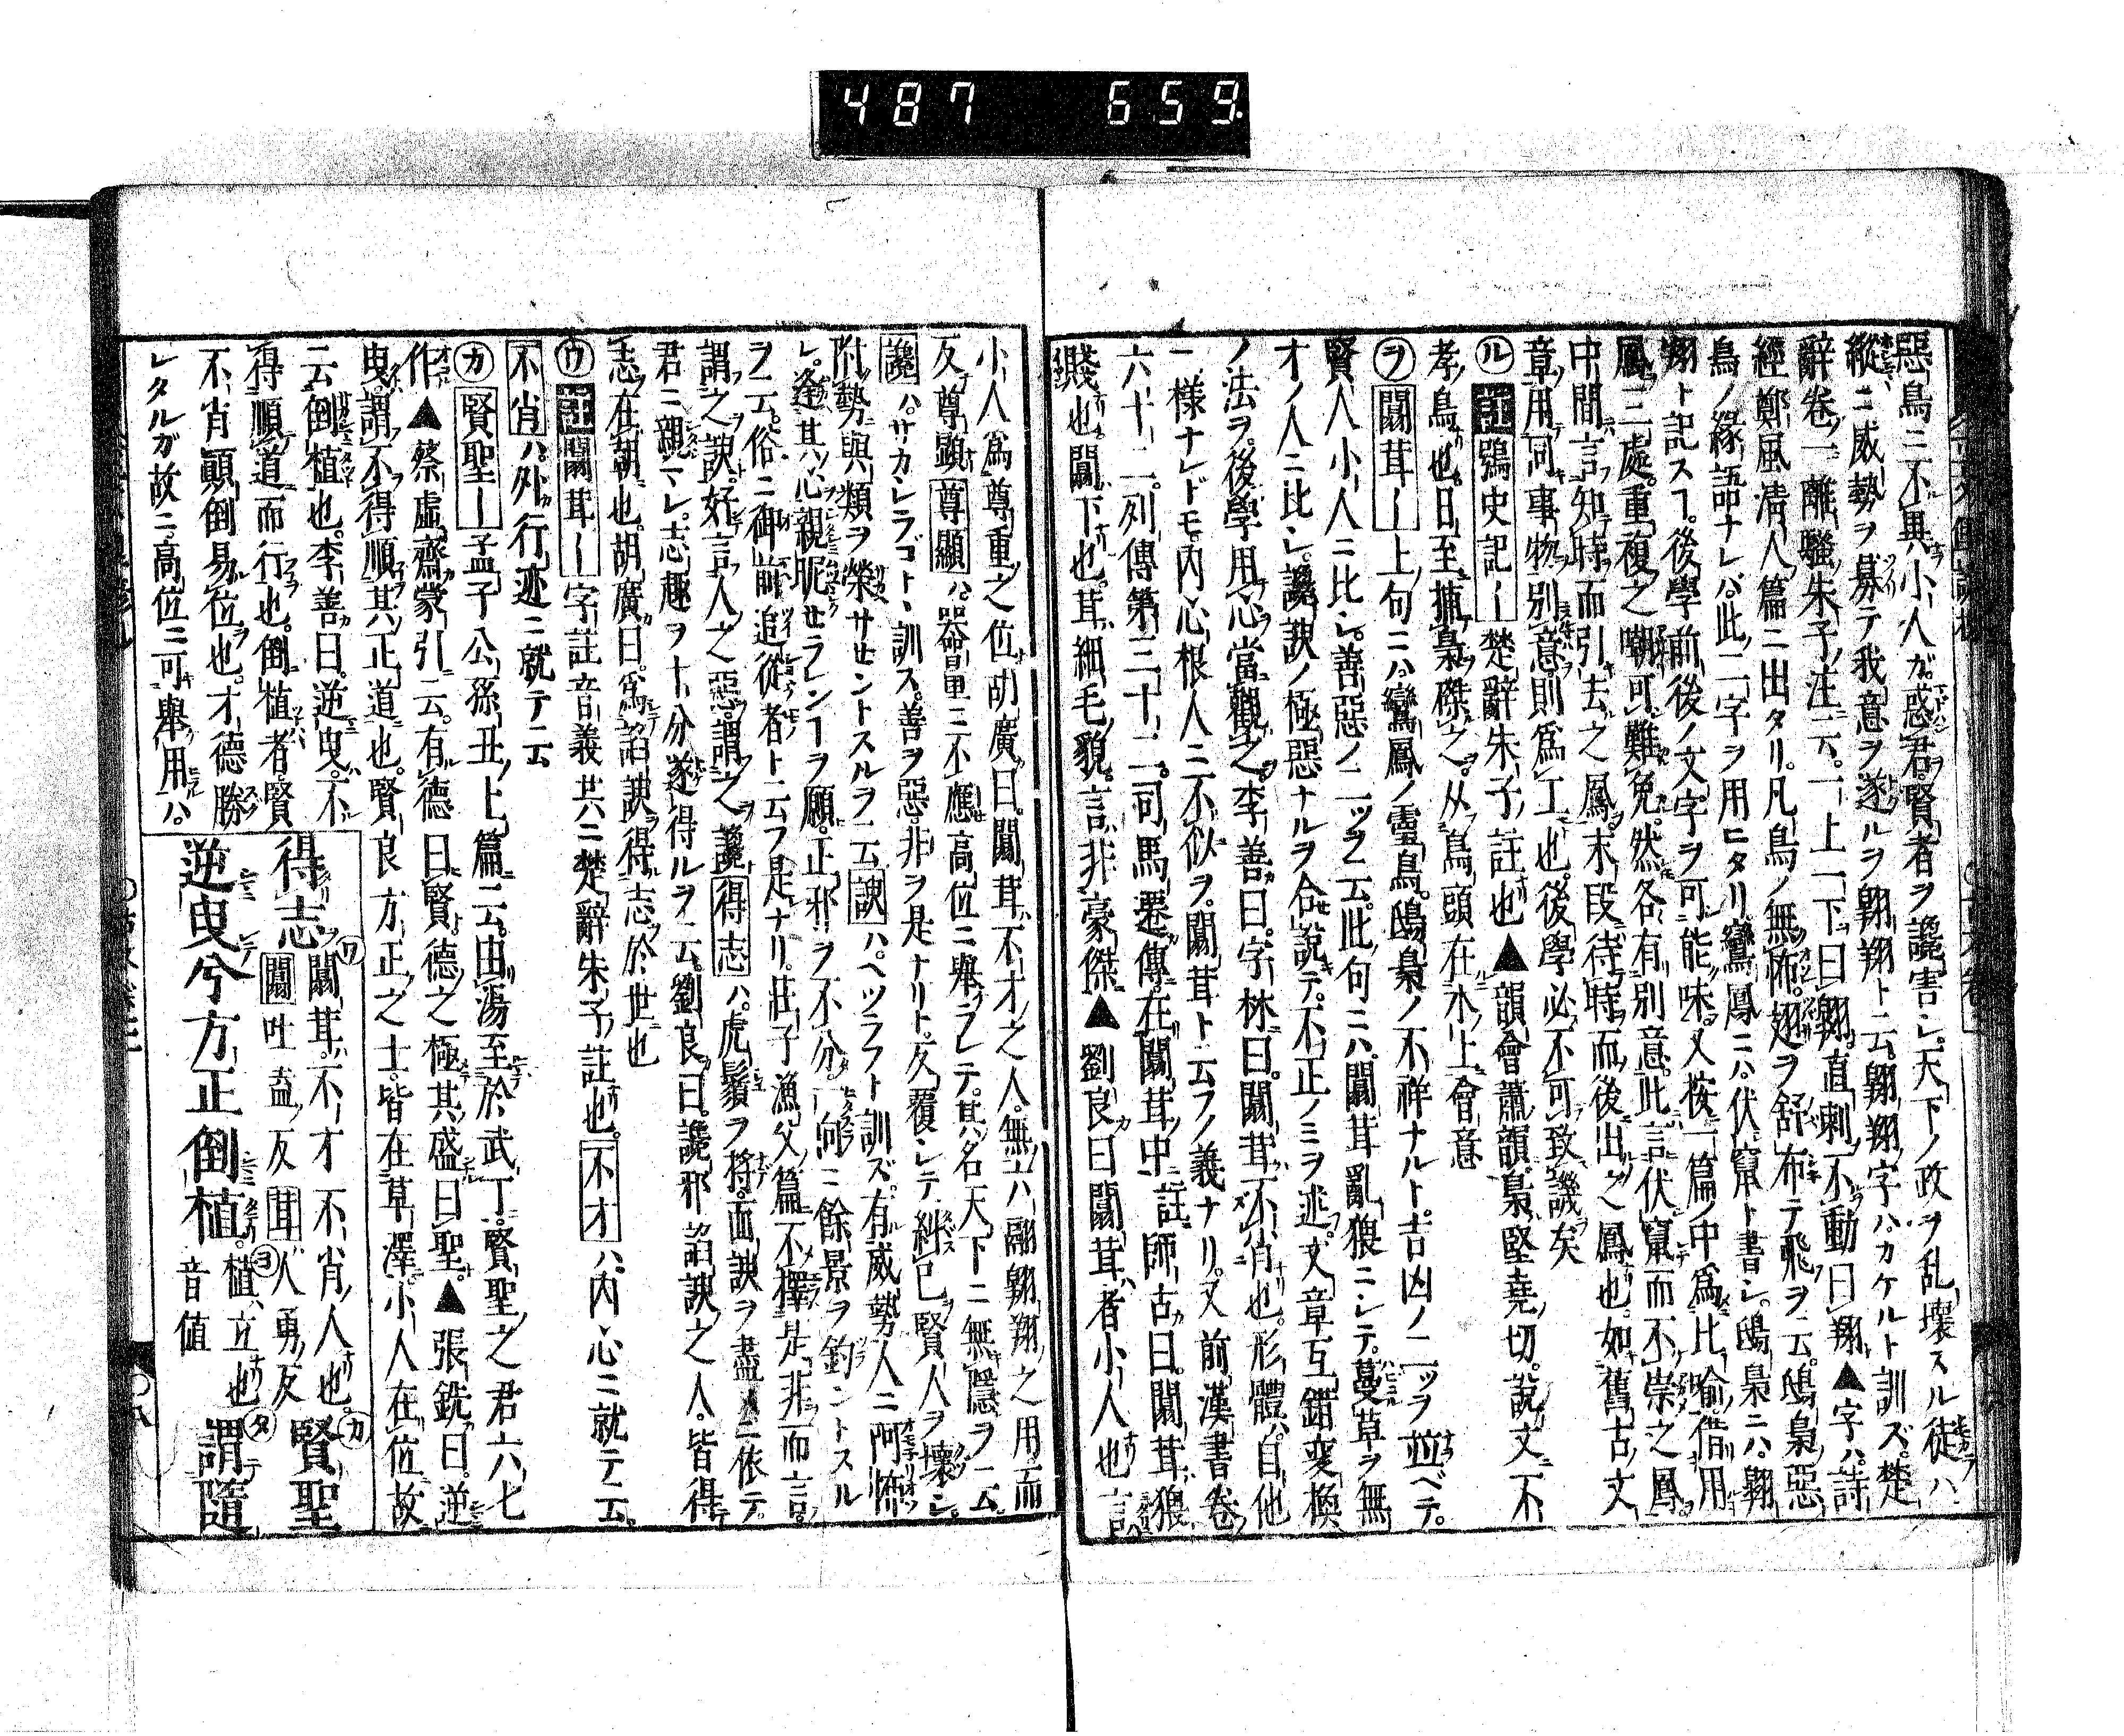 487 659
惡鳥ニ不異小人ガ惑君賢者ヲ讒害シ天下ノ政ヲ乱壞スル徒ハ
縱ニ威勢ヲ募テ我意ヲ遂ルヲ翺翔ト云翺翔字ハカケルト訓ズ楚
辭卷一離騷朱子注云一上一下曰翺直刺不動曰翔▲字ハ詩
經鄭風清人篇ニ出タリ凡鳥ノ無怖翅ヲ舒布テ飛ヲ云鴟梟惡
鳥ノ緣語ナレバ此二字ヲ用ヒタリ鸞鳳ニハ伏竄ト書シ鴟梟ニハ翺
翔ト記スヿ後學前後ノ文字ヲ可能味又按一篇ノ中爲比喻借用
鳳三處重複之嘲可難免然各有別意此言伏竄而不崇之鳳
中間言知時而引去之鳳末段待時而後出之鳳也如舊古文
章用同事物別意則爲工也後學必不可致譏矣
ル 註 鴞史記― 楚辭朱子註也▲韻會蕭韻梟堅堯切説文不
孝鳥也日至捕梟磔之从鳥頭在木上會意
ヲ 闒茸― 上句ニハ鸞鳳ノ靈鳥鴟梟ノ不祥ナルト吉凶ノ二ツヲ並ベテ
賢人小人ニ比シ善惡ノ二ツヲ云此句ニハ闒茸亂猥ニシテ蔓草ヲ無
才ノ人ニ比シ讒諛ノ極惡ナルヲ合説テ不正ノミヲ述文章互錯変換
ノ法ヲ後學用心當觀之李善曰字林曰闒茸不肖也形體自他
一樣ナレドモ内心根人ニ不似ヲ闒茸ト云フノ義ナリ又前漢書卷
六十二列傳第三十二司馬遷傳在闒茸中註師古曰闒茸猥
賤也闒下也茸細毛貌言非豪傑▲劉良曰闒茸者小人也言
小人爲尊重之位胡廣曰闒茸不才之人無六翮翺翔之用而
反尊顯 尊顯 ハ器量ニ不應高位ニ舉ラレテ其名天下ニ無隱ヲ云
讒 ハサカシラゴト訓ス善ヲ惡非ヲ是ナリト反覆シテ糾巳賢人ヲ壞シ
附勢與類ヲ榮サセントスルヲ云 諛 ハヘツラフト訓ズ有威勢人ニ阿怖
レ逢其心親昵セラレンヿヲ願正邪ヲ不分一向ニ餘景ヲ釣ントスル
ヲ云俗ニ御前追從者ト云フ是ナリ莊子漁父篇不擇是非而言
謂之諛好言人之惡謂之讒 得志 ハ虎鬚ヲ捋面諛ヲ盡ニ依テ
君ニ親マレ志趣ヲ十分遂得ルヲ云劉良曰讒邪諂諛之人皆得
志在朝也胡廣曰爲諂諛得志於世也
ワ 註 闒茸― 字註音義共ニ楚辭朱子註也 不才 ハ内心ニ就テ云
不肖 ハ外行迹ニ就テ云
カ 賢聖― 孟子公孫丑上篇云由湯至於武丁賢聖之君六七
作▲蔡虚齋蒙引云有德曰賢德之極其盛曰聖▲張銑曰逆
曳謂不得順其正道也賢良方正之士皆在草澤小人在位故
云倒植也李善曰逆曳不
得順道而行也倒植者賢
不肖顚倒易位也才德勝
レタルガ故ニ高位ニ可舉用ハ
得志 ワ 闒茸不才不肖人也 闒 吐盍反 茸 人勇反 カ 賢聖
逆曳兮方正倒植 ヨ 植立也音値 タ 謂隨